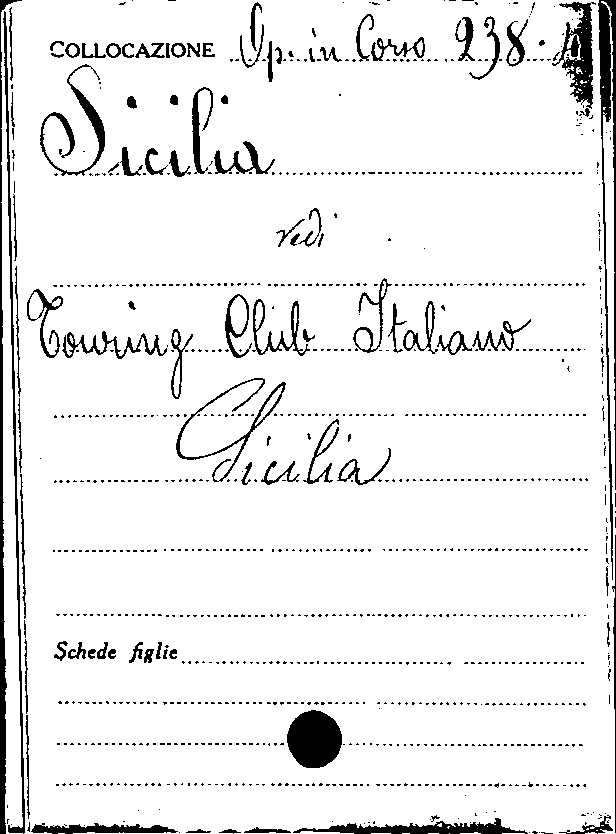 COLLOCAZIONE Op. in Corso 238.
Sicilia
vedi
Touring Club Italiano
Sicilia
Schede figlie